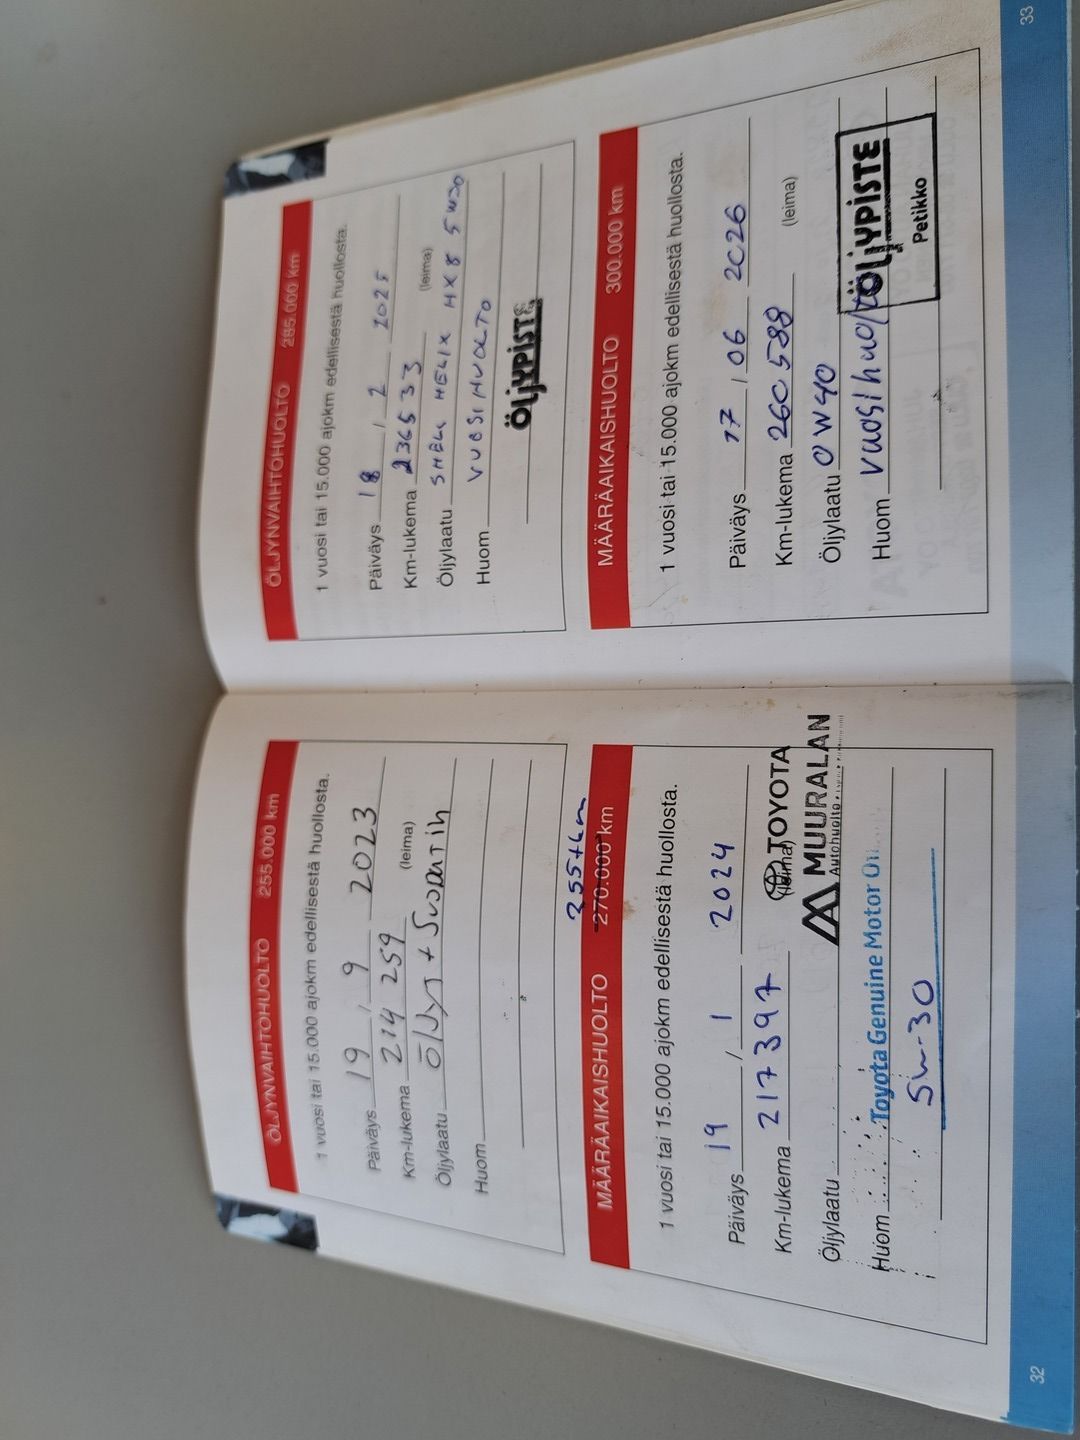 ÖLJYNVAIHTOHUOLTO 255.000 km
1 vuosi tai 15.000 ajokm edellisestä huollosta.
Päiväys 19 / 9 2023
Km-lukema 214 259 (leima)
Öljylaatu öljyt + Suodatin
Huom
255tkm
MÄÄRÄAIKAISHUOLTO 270.000 km
1 vuosi tai 15.000 ajokm edellisestä huollosta.
Päiväys 19 / 1 2024
Km-lukema 217397 (leima)
TOYOTA
MUURALAN
Autohuolto
Öljylaatu
Huom Toyota Genuine Motor Oil
5w-30
32
ÖLJYNVAIHTOHUOLTO 285.000 km
1 vuosi tai 15.000 ajokm edellisestä huollosta.
Päiväys 18 / 2 2025
Km-lukema 236533 (leima)
Öljylaatu SHELL HELIX HX8 5W30
Huom VUOSIHUOLTO
ÖLJYPISTE
MÄÄRÄAIKAISHUOLTO 300.000 km
1 vuosi tai 15.000 ajokm edellisestä huollosta.
Päiväys 17 / 06 2026
Km-lukema 260588 (leima)
Öljylaatu 0W40
Huom vuosihuolto
ÖLJYPISTE
Petikko
33